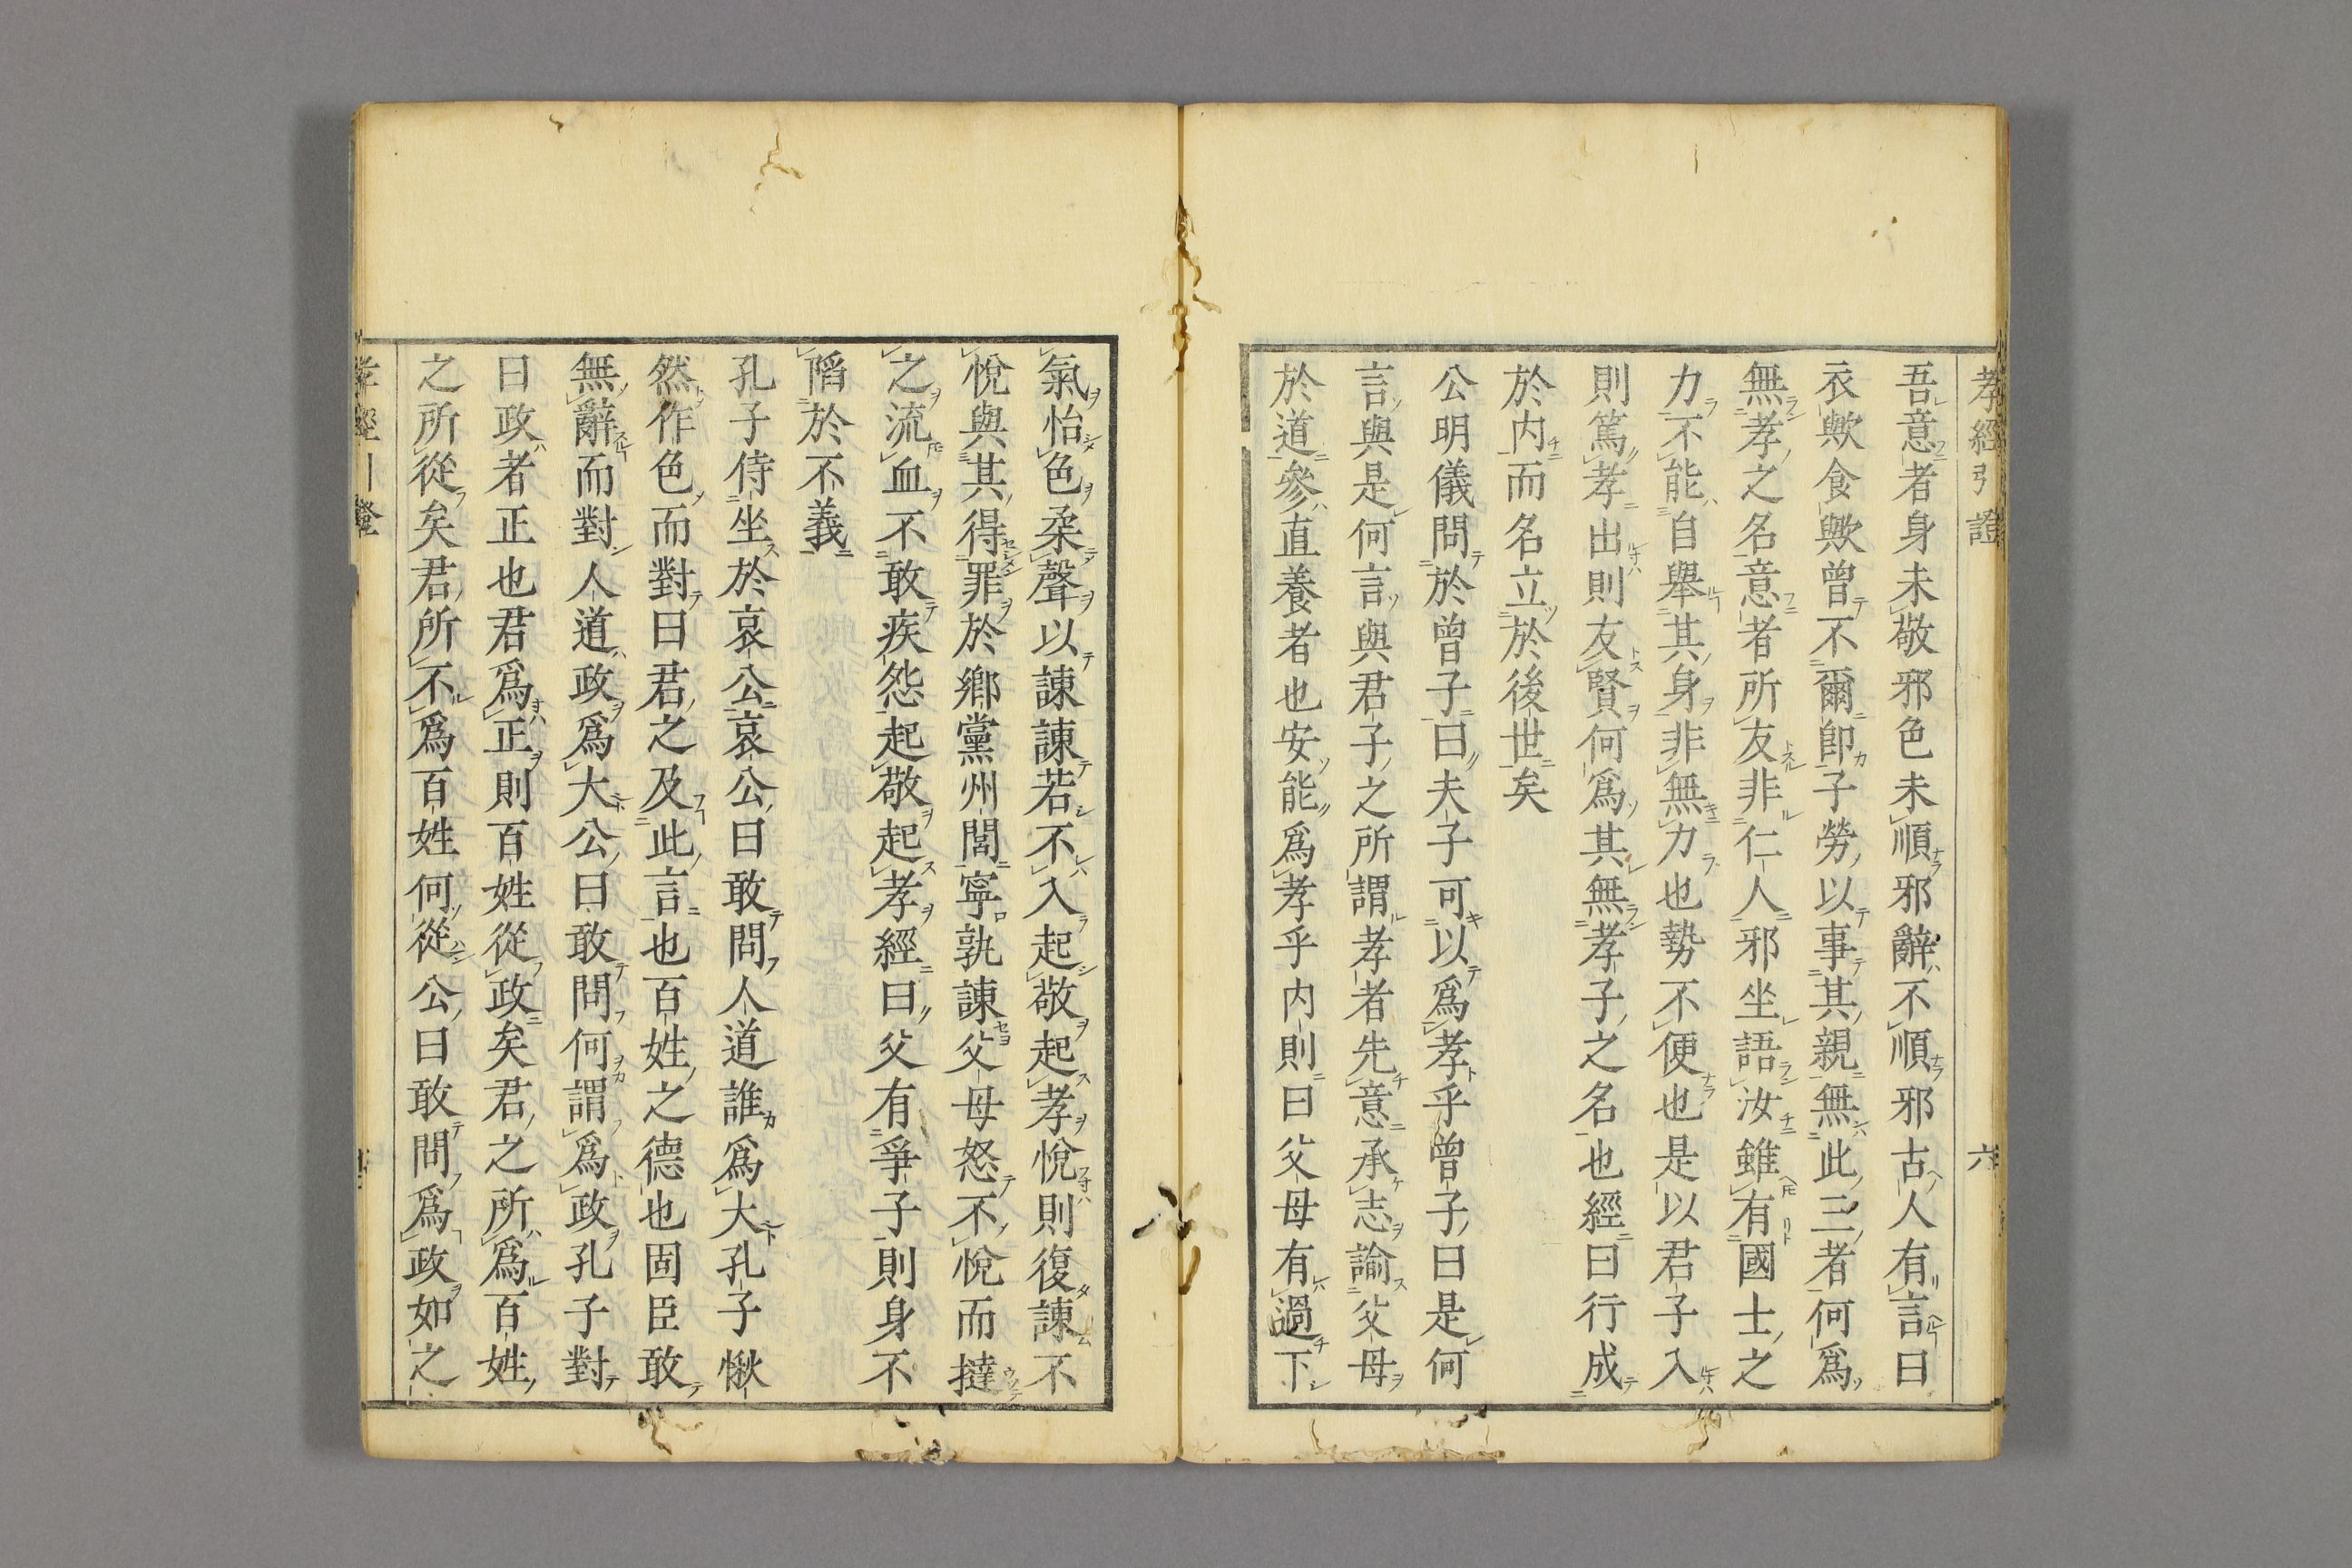 孝經引證 六
吾意者身未敬邪色未順邪辭不順邪古人有言曰
衣歟食歟曾不爾卽子勞以事其親無此三者何爲
無孝之名意者所友非仁人邪坐語汝雖有國士之
力不能自舉其身非無力也勢不便也是以君子入
則篤孝出則友賢何爲其無孝子之名也經曰行成
於内而名立於後世矣
公明儀問於曾子曰夫子可以爲孝乎曾子曰是何
言與是何言與君子之所謂孝者先意承志諭父母
於道參直養者也安能爲孝乎内則曰父母有過下
氣怡色柔聲以諫諫若不入起敬起孝悅則復諫不
悅與其得罪於鄉黨州閭寧孰諫父母怒不悅而撻
之流血不敢疾怨起敬起孝經曰父有爭子則身不
陷於不義
孔子侍坐於哀公哀公曰敢問人道誰爲大孔子愀
然作色而對曰君之及此言也百姓之德也固臣敢
無辭而對人道政爲大公曰敢問何謂爲政孔子對
曰政者正也君爲正則百姓從政矣君之所爲百姓
之所從矣君所不爲百姓何從公曰敢問爲政如之
孝經引證